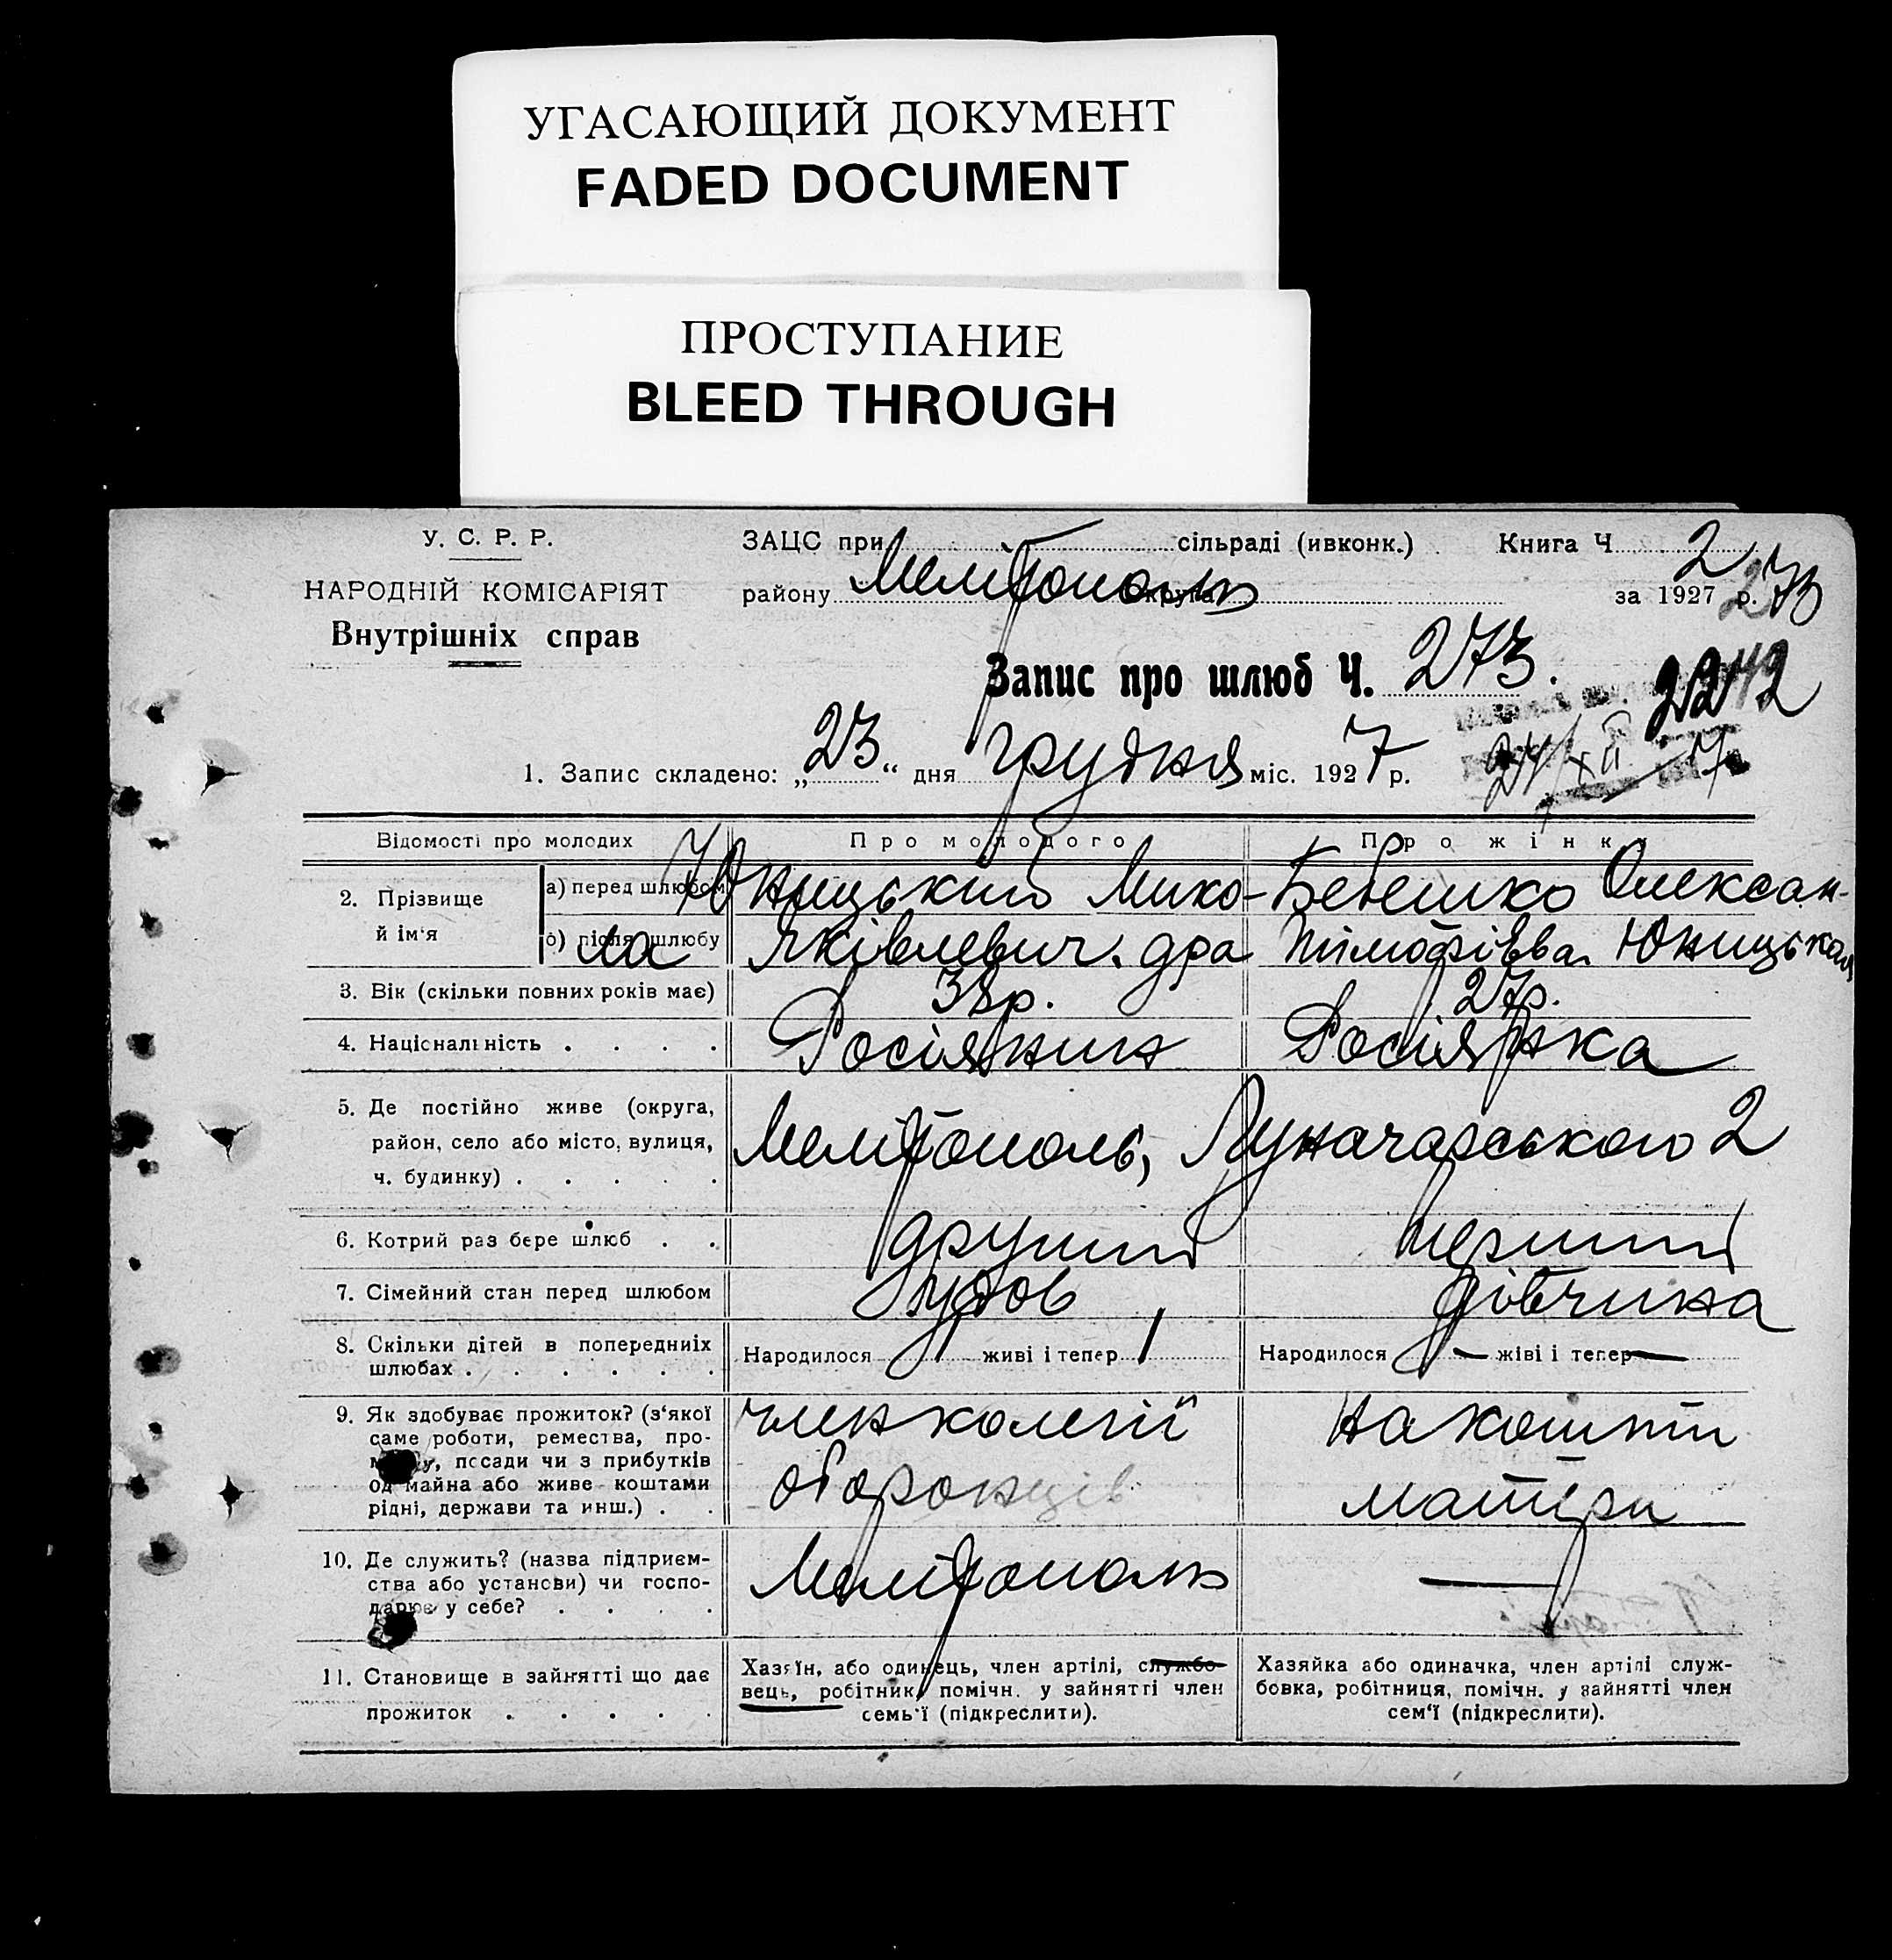 УГАСАЮЩИЙ ДОКУМЕНТ
FADED DOCUMENT
ПРОСТУПАНИЕ
BLEED THROUGH
У. С. Р. Р.
НАРОДНІЙ КОМІСАРІЯТ
Внутрішніх справ
ЗАЦС при сільраді (ивконк.) Книга Ч 2
району Мелітополь округа за 1927 р. 273
Запис про шлюб Ч. 273.
2242
1. Запис складено: „23“ дня грудня міс. 1927 р.
24/XII 7
Відомості про молодих
Про молодого
Про жінку
2. Прізвище й ім‘я
а) перед шлюбом
б) після шлюбу
Юницький Мико-
ла Яківлевич.
Бебешко Олексан-
дра Тімофієвва. Юницькая
3. Вік (скільки повних років має)
38р.
27р.
4. Національність
Росіянин
Росіянка
5. Де постійно живе (округа,
район, село або місто, вулиця,
ч. будинку)
Мелітополь, Луначарського 2
6. Котрий раз бере шлюб
другий
перший
7. Сімейний стан перед шлюбом
удов
дівчина
8. Скільки дітей в попередниіх
шлюбах
Народилося 1 живі і тепер 1
Народилося — жіві і тепер —
9. Як здобуває прожиток? (з‘якої
саме роботи, ремества, про-
мислу, посади чи з прибутків
од майна або живе коштами
рідні, держави та инш.)
член колегії
оборонців
на кошти
матери
10. Де служить? (назва підприєм-
ства або установи) чи госпо-
дарює у себе?
Мелітополь
—
11. Становище в зайнятті що дає
прожиток
Хазяїн, або одинець, член артілі, службо-
вець, робітник, помічн. у зайнятті член
семь‘ї (підкреслити).
Хазяйка або одиначка, член артілі служ-
бовка, робітниця, помічн. у зайнятті член
сем‘ї (підкреслити).